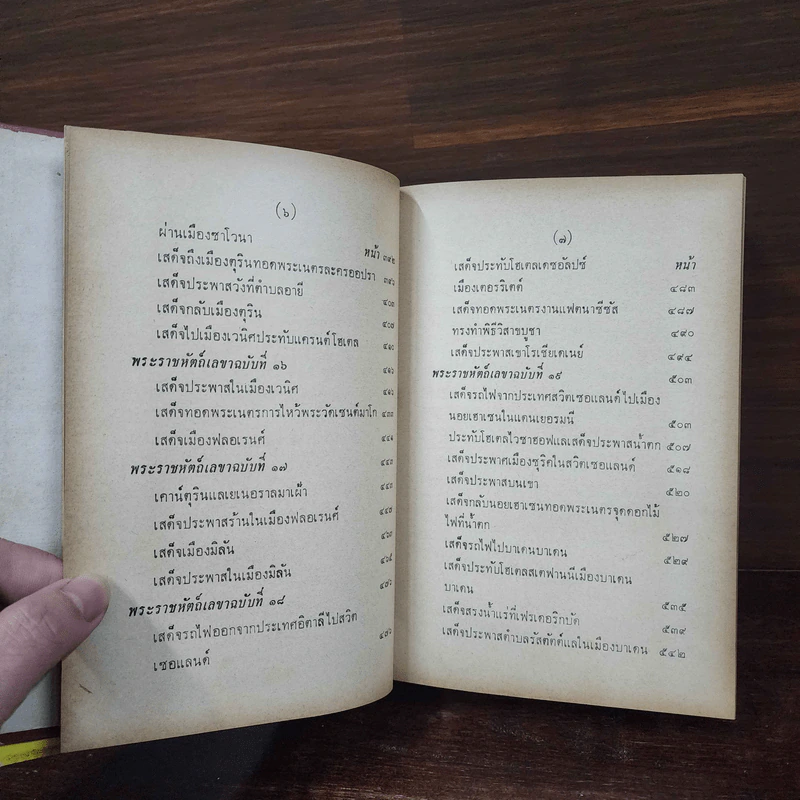 (๖)
หน้า
ผ่านเมืองซาโวนา ๓๙๒
เสด็จถึงเมืองตุรินทอดพระเนตรละครออปรา ๓๙๖
เสด็จประพาสวังที่ตำบลอายี ๔๐๓
เสด็จกลับเมืองตุริน ๔๐๗
เสด็จไปเมืองเวนิศประทับแครนต์โฮเตล ๔๑๐
พระราชหัตถ์เลขาฉบับที่ ๑๖ ๔๑๖
เสด็จประพาสในเมืองเวนิศ ๔๑๖
เสด็จทอดพระเนตรการไหว้พระวัดเซนต์มาโก ๔๓๓
เสด็จเมืองฟลอเรนศ์ ๔๔๑
พระราชหัตถ์เลขาฉบับที่ ๑๗ ๔๔๓
เคาน์ตุรินแลเยเนอราลมาเฝ้า ๔๔๓
เสด็จประพาสร้านในเมืองฟลอเรนศ์ ๔๔๓
เสด็จเมืองมิลัน ๔๖๓
เสด็จประพาสในเมืองมิลัน ๔๖๔
พระราชหัตถ์เลขาฉบับที่ ๑๘ ๔๗๖
เสด็จรถไฟออกจากประเทศอิตาลีไปสวิต
เซอแลนด์ ๔๗๖
(๗)
หน้า
เสด็จประทับโฮเตลเดซอัลปซ์
เมืองเตอรริเตต์ ๔๘๓
เสด็จทอดพระเนตรงานแฟตนาซีซัส ๔๘๗
ทรงทำพิธีวิสาขบูชา ๔๙๐
เสด็จประพาสเขาโรเซียเดเนย์ ๔๙๔
พระราชหัตถ์เลขาฉบับที่ ๑๙ ๕๐๓
เสด็จรถไฟจากประเทศสวิตเซอแลนด์ไปเมือง
นอยเฮาเซนในแดนเยอรมนี ๕๐๓
ประทับโฮเตลไวซาฮอฟแลเสด็จประพาสน้ำตก ๕๐๗
เสด็จประพาศเมืองซุริคในสวิตเซอแลนด์ ๕๑๘
เสด็จประพาสบนเขา ๕๒๐
เสด็จกลับนอยเฮาเซนทอดพระเนตรจุดดอกไม้
ไฟที่น้ำตก ๕๒๗
เสด็จรถไฟไปบาเดนบาเดน ๕๒๙
เสด็จประทับโฮเตลสเตฟานนีเมืองบาเดน
บาเดน ๕๓๕
เสด็จสรงน้ำแร่ที่เฟรเดอริกบัด ๕๓๙
เสด็จประพาสตำบลรัสตัตต์แลในเมืองบาเดน ๕๔๒